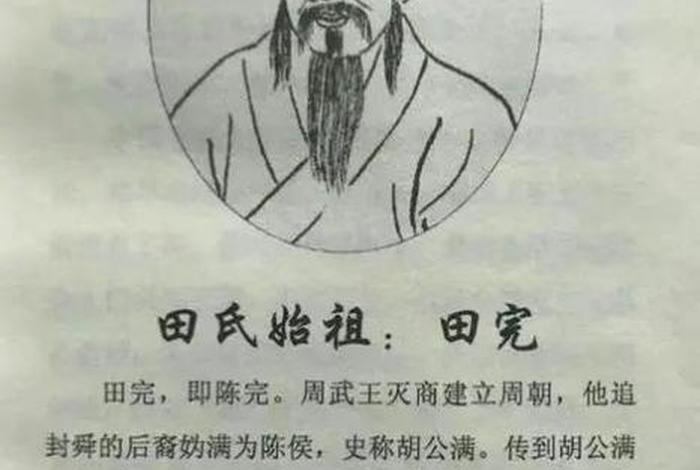 田氏始祖：田完
田完，即陈完。周武王灭商建立周朝，他追
封舜的后裔妫满为陈侯，史称胡公满。传到胡公满